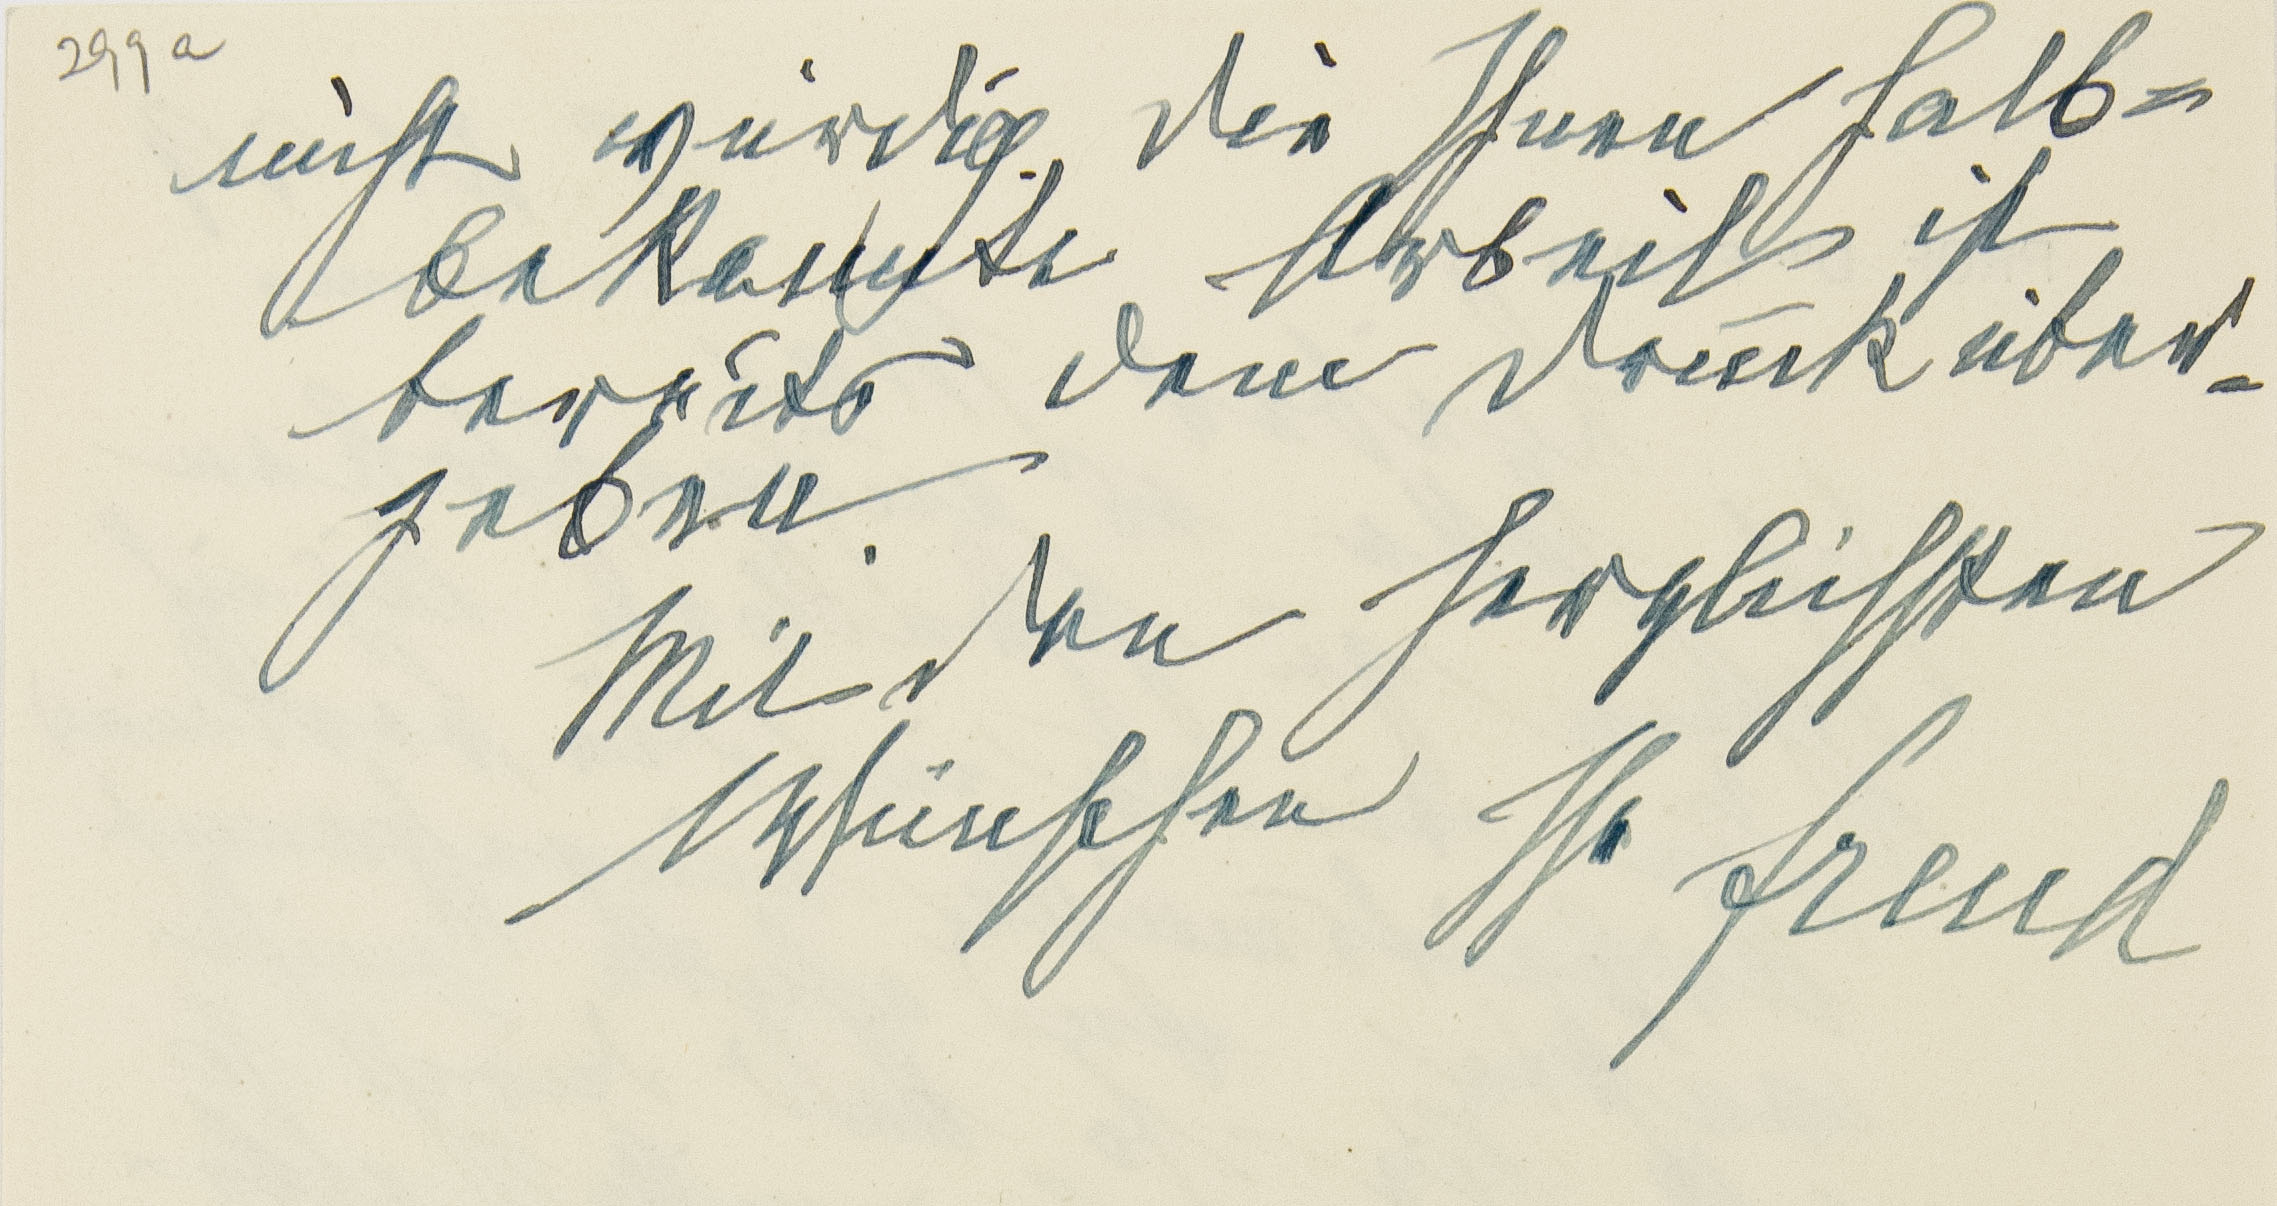 299 a
nicht würdig. Die Ihnen halb=
bekannte Arbeit ist
bereits dem Druck über-
geben.
Mit den herzlichsten
Wünschen Ihr Freud